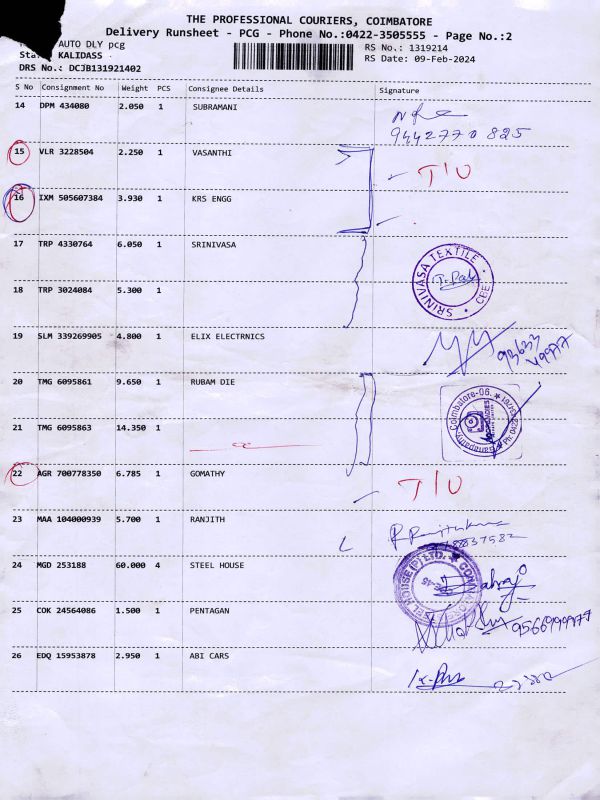 THE PROFESSIONAL COURIERS, COIMBATORE
Delivery Runsheet - PCG - Phone No.:0422-3505555 - Page No.:2
AUTO DLY pcg
RS No.: 1319214
KALIDASS
RS Date: 09-Feb-2024
DRS No.: DCJB131921402
S No Consignment No Weight PCS Consignee Details Signature
14 DPM 434080 2.050 1 SUBRAMANI
9442770825
15 VLR 3228504 2.250 1 VASANTHI T/U
16 IXM 505607384 3.930 1 KRS ENGG
17 TRP 4330764 6.050 1 SRINIVASA
SRINIVASA TEXTILE * CBE *
18 TRP 3024084 5.300 1
19 SLM 339269905 4.800 1 ELIX ELECTRNICS
20 TMG 6095861 9.650 1 RUBAM DIE
Coimbatore-06.
21 TMG 6095863 14.350 1
22 AGR 700778350 6.785 1 GOMATHY T/U
23 MAA 104000939 5.700 1 RANJITH
24 MGD 253188 60.000 4 STEEL HOUSE
25 COK 24564086 1.500 1 PENTAGAN
26 EDQ 15953878 2.950 1 ABI CARS